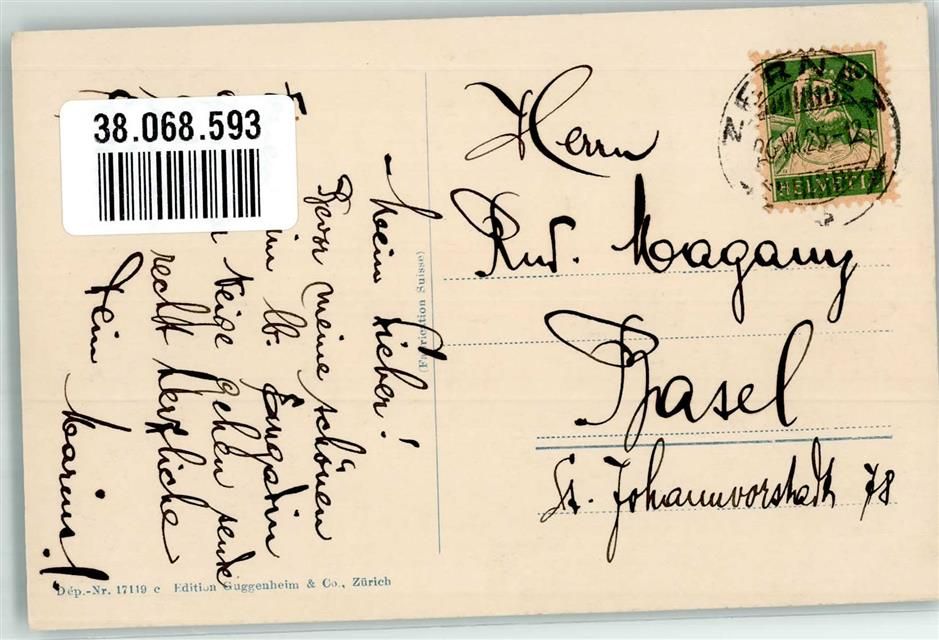 38.068.593
Mein Lieber!
Bevor meine schönen
im lb. Engadin
Neige gehen sende
recht herzliche
Dein Marius!
(Fabrication Suisse)
Dép.-Nr. 17119 c Edition Guggenheim & Co., Zürich
ZERNEZ
26.VII.25.-12
HELVETIA
Herrn
Rud. Magany
Basel
St. Johannvorstadt 78